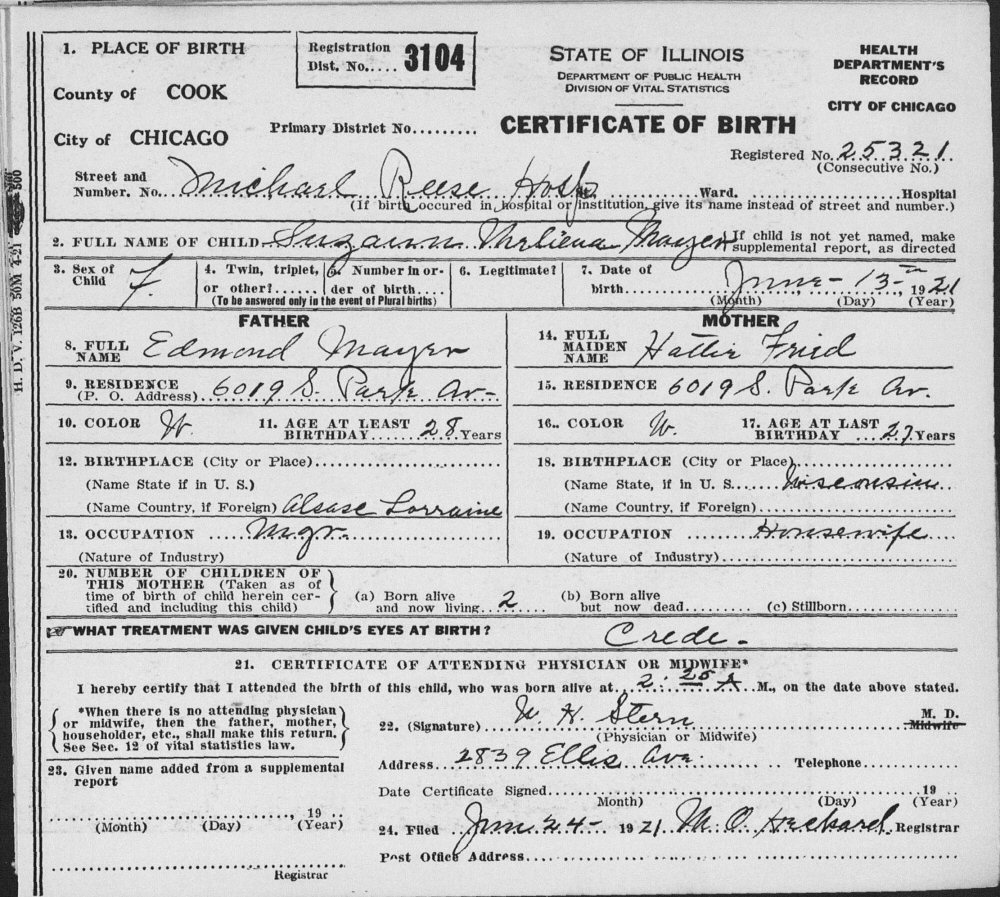 1. PLACE OF BIRTH
Registration Dist. No..... 3104
STATE OF ILLINOIS
DEPARTMENT OF PUBLIC HEALTH
DIVISION OF VITAL STATISTICS
HEALTH DEPARTMENT'S RECORD
CITY OF CHICAGO
County of COOK
City of CHICAGO
Primary District No.........
CERTIFICATE OF BIRTH
Registered No. 25321
(Consecutive No.)
Street and Number. No... Michael Reese Hosp. ........Ward. ........Hospital
(If birth occured in hospital or institution, give its name instead of street and number.)
2. FULL NAME OF CHILD Mayer
If child is not yet named, make supplemental report, as directed
3. Sex of Child F.
4. Twin, triplet, or other?......
5. Number in order of birth....
(To be answered only in the event of Plural births)
6. Legitimate?
7. Date of birth June - 13 - 1921
(Month) (Day) (Year)
FATHER
8. FULL NAME Edmond Mayer
9. RESIDENCE (P. O. Address).. 6019 S. Park Av-
10. COLOR W.
11. AGE AT LEAST BIRTHDAY....... 28 Years
12. BIRTHPLACE (City or Place)......
(Name State if in U. S.)
(Name Country, if Foreign) Alsase Lorraine
13. OCCUPATION ..... Mgr.
(Nature of Industry)
MOTHER
14. FULL MAIDEN NAME Hattie Fried
15. RESIDENCE 6019 S. Park Av.
16.. COLOR W.
17. AGE AT LAST BIRTHDAY ... 27 Years
18. BIRTHPLACE (City or Place)......
(Name State, if in U. S...... Wisconsin
(Name Country, if Foreign)......
19. OCCUPATION ........ Housewife
(Nature of Industry)......
20. NUMBER OF CHILDREN OF THIS MOTHER (Taken as of time of birth of child herein certified and including this child)
(a) Born alive and now living.. 2
(b) Born alive but now dead........
(c) Stillborn..............
WHAT TREATMENT WAS GIVEN CHILD'S EYES AT BIRTH? Crede -
21. CERTIFICATE OF ATTENDING PHYSICIAN OR MIDWIFE*
I hereby certify that I attended the birth of this child, who was born alive at.. 2:25 A M., on the date above stated.
*When there is no attending physician or midwife, then the father, mother, householder, etc., shall make this return. See Sec. 12 of vital statistics law.
22. (Signature) Stern M. D. Midwife
(Physician or Midwife)
Address 2839 Ellis Ave. Telephone............
Date Certificate Signed............ 19 ..
Month) (Day) (Year)
23. Given name added from a supplemental report
......, 19 ..
(Month) (Day) (Year)
Registrar
24. Filed June 24- 1921 Registrar
Post Office Address............
H. D. V. 126B 50M 4-21 500